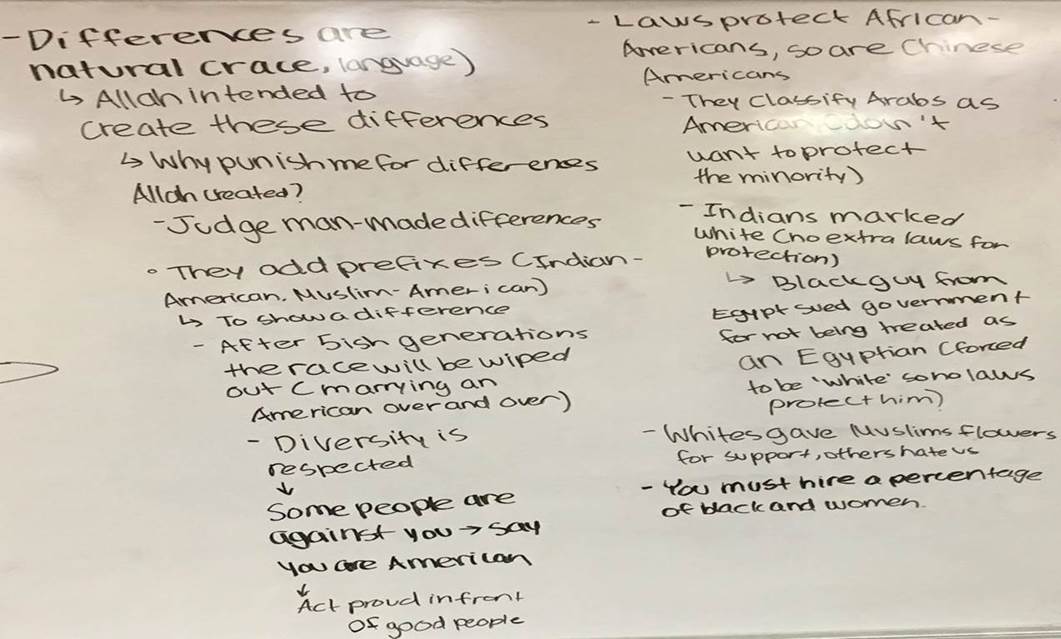 -Differences are
natural (race, language)
↳ Allah intended to
create these differences
↳ Why punish me for differences
Allah created?
-Judge man-made differences
• They add prefixes (Indian-
American. Muslim-American)
↳ To show a difference
- After 5ish generations
the race will be wiped
out (marrying an
American over and over)
- Diversity is
respected
↓
Some people are
against you → say
you are American
↓
Act proud infront
of good people
- Laws protect African-
Americans, so are Chinese
Americans
- They classify Arabs as
American (don't
want to protect
the minority)
- Indians marked
white (no extra laws for
protection)
↳ Black guy from
Egypt sued government
for not being treated as
an Egyptian (forced
to be 'white' so no laws
protect him)
- Whites gave Muslims flowers
for support, others hate us
- You must hire a percentage
of black and women.